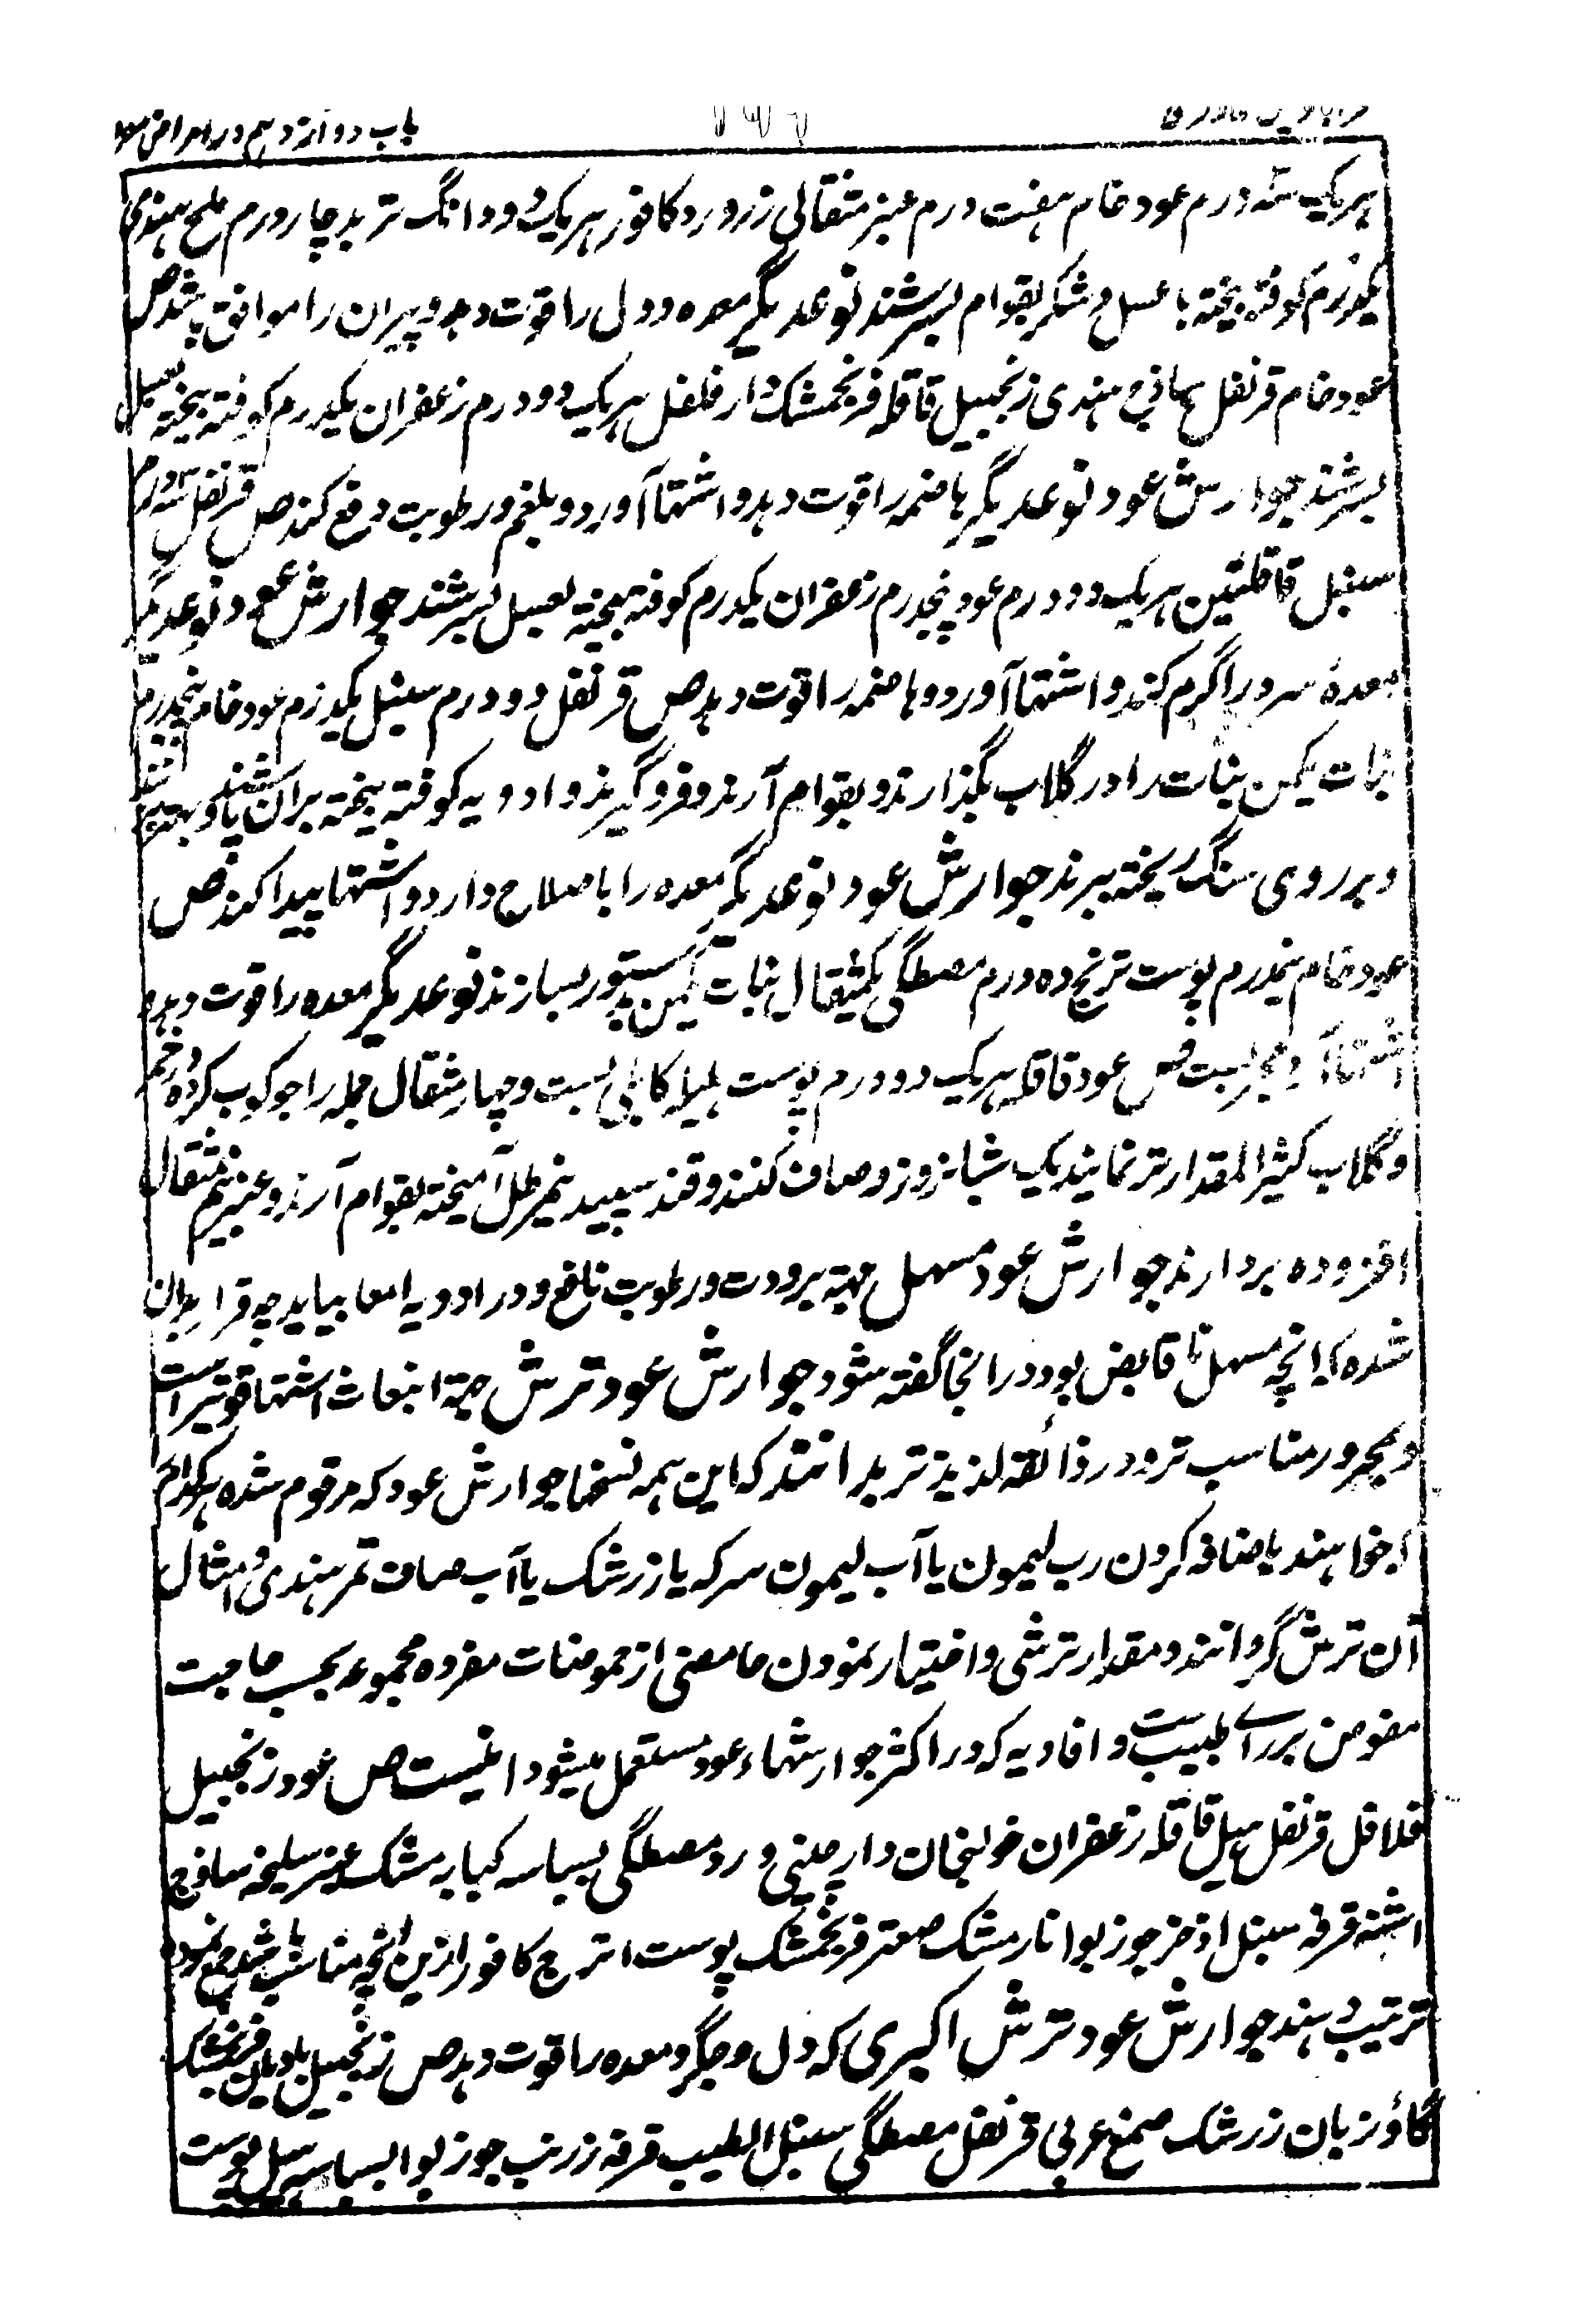 باب دوازدهم در امراض
هریک سه درم عود خام هفت درم عنبر مثقالی زرورد کافور هریک دو دانگ تربد چار درم ملح هندی
یکدرم کوفته بیخته با عسل و شکر بقوام بسرشند نوعدیگر معده و دل را قوت دهد و پیران را موافق باشد ص
عود خام قرنفل ساذج هندی زنجبیل قاقله فرنجمشک دارفلفل هریک دو درم زعفران یکدرم کوفته بیخته بعسل
بسرشند جوارش عود نوعدیگر هاضمه را قوت دهد و اشتها آورد و بلغم و رطوبت دفع کند ص قرنفل سه درم
سنبل قاقلتین هریک دو درم عود پنجدرم زعفران یکدرم کوفته بیخته بعسل بسرشند جوارش عود نوعدیگر
معدهٔ سرد را گرم کند و اشتها آورد و هاضمه را قوت دهد ص قرنفل دو درم سنبل یکدرم عود خام پنجدرم
نبات یکمن نبات را در گلاب بگذارند و بقوام آرند و فرو گیرند و ادویه کوفته بیخته بران پاشند و
و بر روی سنگ ریخته ببرند جوارش عود نوعدیگر معده را باصلاح دارد و اشتها پیدا کند ص
عود خام پنجدرم پوست ترنج ده درم مصطگی یکمثقال نبات یکمن بدستور بسازند نوعدیگر معده را قوت دهد و
اشتها آرد و مجربست ص عود قاقله هریک دو درم پوست هلیله کابلی بست و چهار مثقال جمله را جوکوب کرده در خمر
و گلاب کثیر المقدار تر نمایند یک شبانروز و صاف کنند و قند سپید نیم رطل آمیخته بقوام آرند و عنبر نیم مثقال
افزوده بردارند جوارش عود مسهل جهته برودت و رطوبت نافع و در ادویه امعا بیاید چه قرار بدان
شده که انچه مسهل یا قابض بود در انجا گفته شود جوارش عود ترش جهته انبعاث اشتها قویتر است
و بمحرور مناسب تر و در ذائقه لذیذ تر بدانند که این همه نسخها جوارش عود که مرقوم شده هر کدام
که خواهند باضافه کردن رب لیمون یا آب لیمون سرکه یا زرشک یا آب صاف تمر هندی و امثال
آن ترش گردانند و مقدار ترشی و اختیار نمودن حامضی از حموضات مفرده مجموعه بحسب حاجت
مفوض برراے طبیب ست و افادیه که در اکثر جوارشهاء عود مستعمل میشود اینست ص عود زنجبیل
فلافل قرنفل هیل قاقله زعفران خولنجان دارچینی ورد مصطگی بسباسه کبابه مشک عنبر سلیخه ساذج
اشنه قرفه سنبل اذخر جوزبوا نارمشک صعتر فرنجمشک پوست اترج کافور ازین انچه مناسب باشد جمع نموده
ترتیب دهند جوارش عود ترش اکبری که دل و جگر و معده را قوت دهد ص زنجبیل بادیان فرنجمشک
گاؤزبان زرشک صمغ عربی قرنفل مصطگی سنبل الطیب قرفه زرنب جوزبوا بسباسه هیل پوست